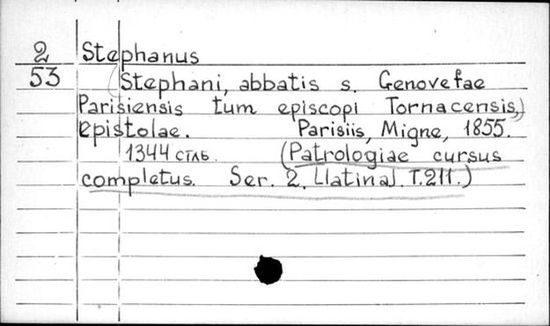 2 Stephanus
53 (Stephani, abbatis s. Genovefae
Parisiensis tum episcopi Tornacensis,)
Epistolae. Parisiis, Migne, 1855.
1344 стлб. (Patrologiae cursus
completus. Ser. 2, [latina]. T.211.)